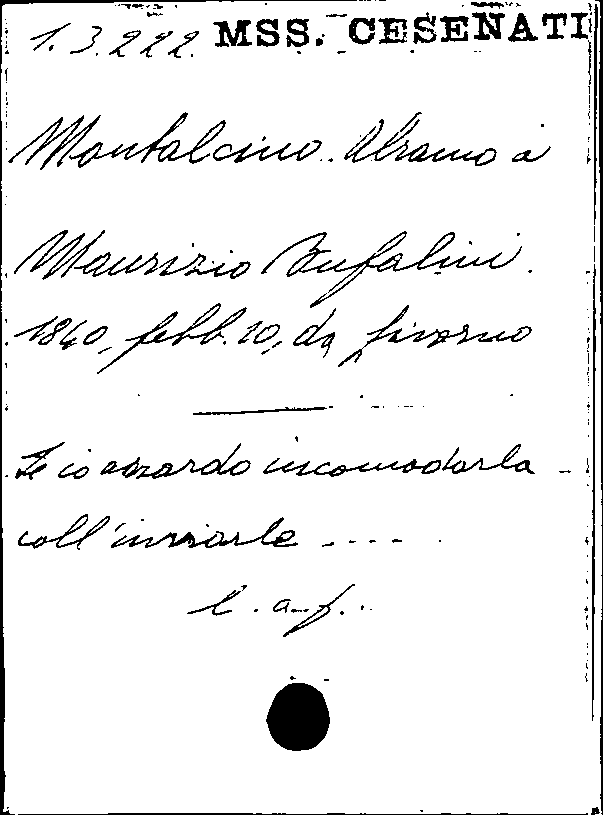 1.3.222. MSS. CESENATI
Montalcino Abramo a
Maurizio Bufalini.
1840, febb. 10, da Livorno
Se io azzardo incomodarla
coll'inviarle ....
l. a. f.